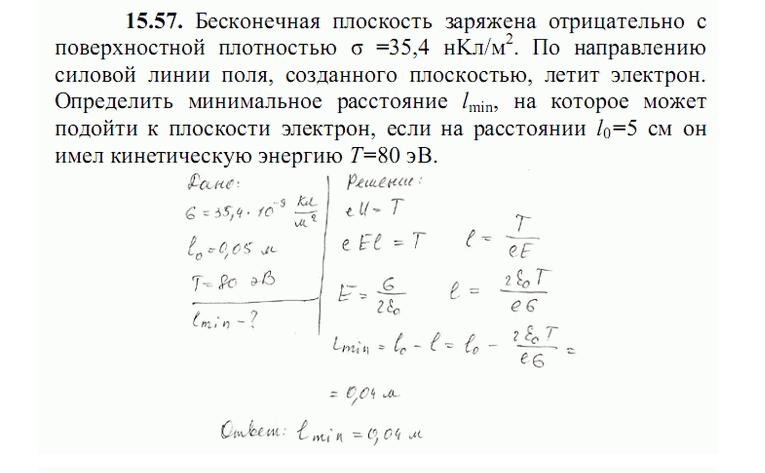 15.57. Бесконечная плоскость заряжена отрицательно с
поверхностной плотностью σ =35,4 нКл/м². По направлению
силовой линии поля, созданного плоскостью, летит электрон.
Определить минимальное расстояние lmin, на которое может
подойти к плоскости электрон, если на расстоянии l₀=5 см он
имел кинетическую энергию T=80 эВ.
Дано:
σ = 35,4 · 10⁻⁹ Кл/м²
l₀ = 0,05 м
T = 80 эВ
lmin - ?
Решение:
eU = T
eEl = T l = T/eE
E = σ/2ε₀ l = 2ε₀T/eσ
lmin = l₀ - l = l₀ - 2ε₀T/eσ =
= 0,04 м
Ответ: lmin = 0,04 м